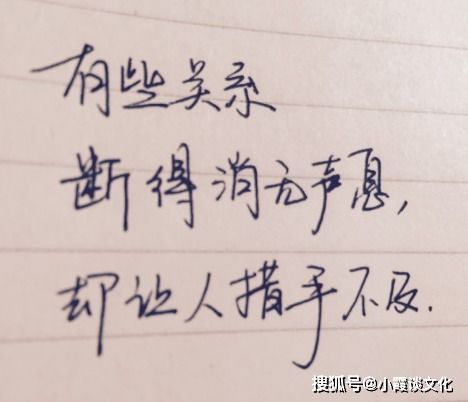 有些关系
断得消无声息,
却让人措手不及.
搜狐号@小霞谈文化